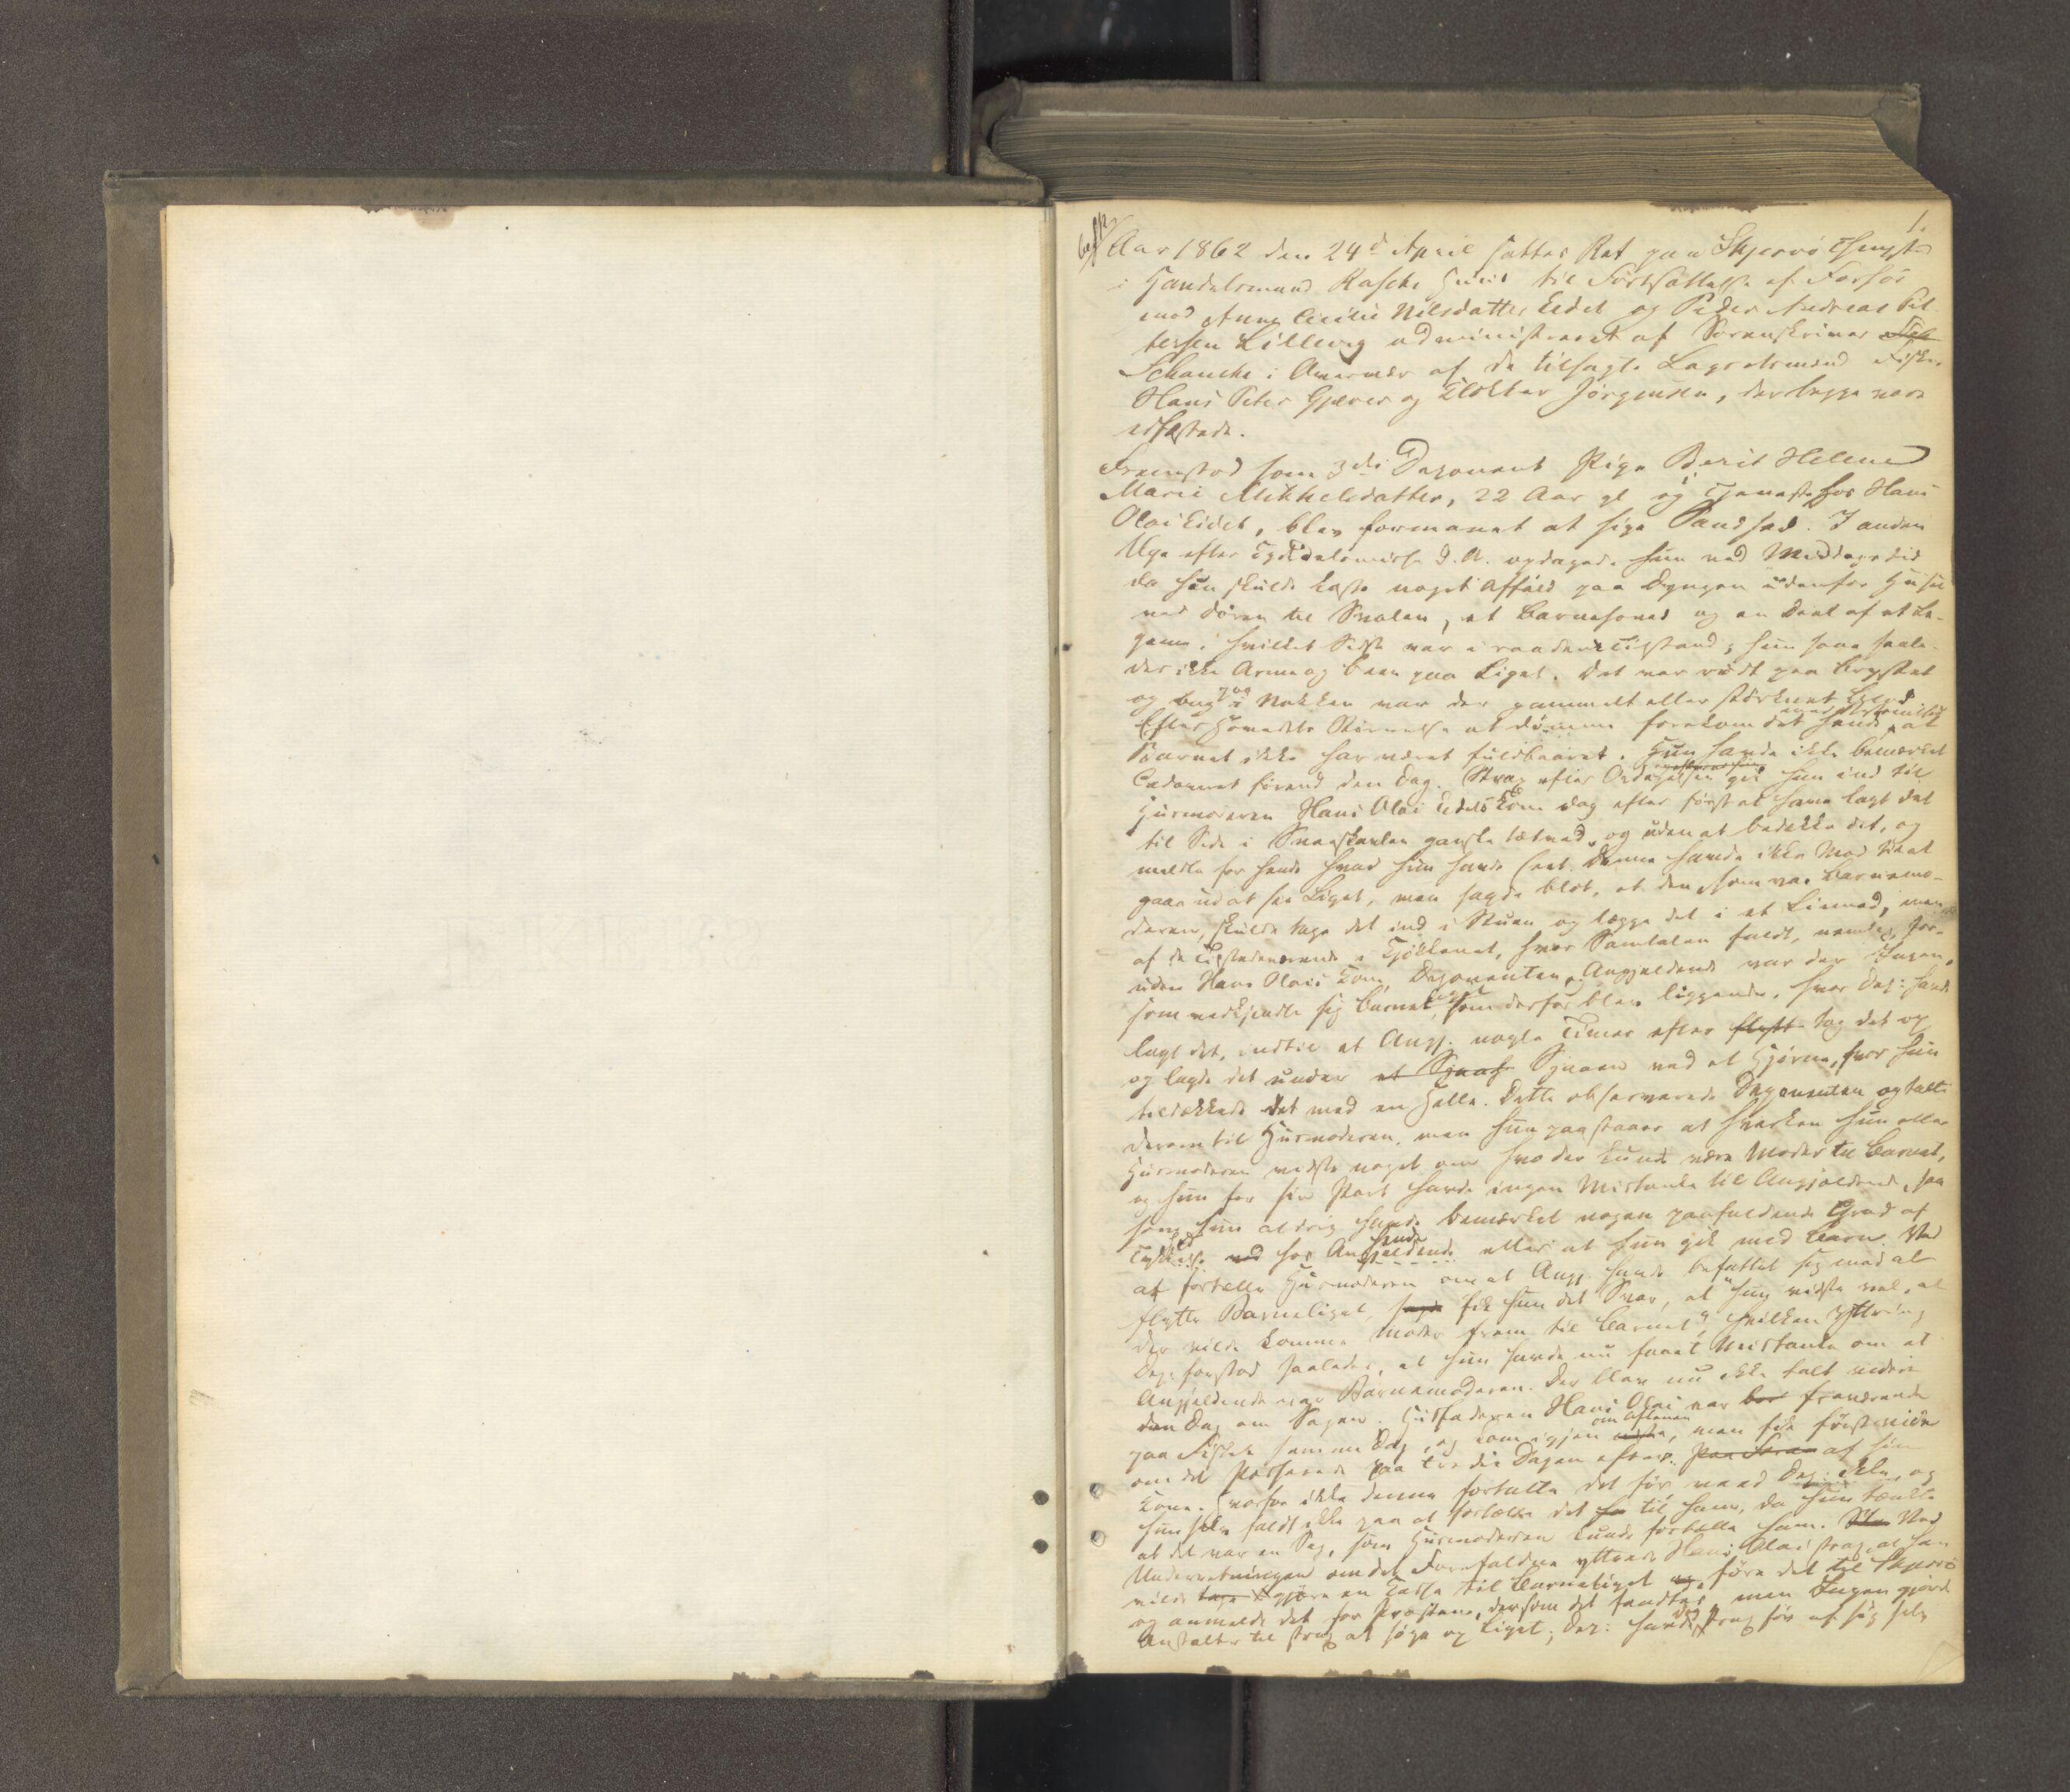 1.
Aar 1862 den 24d April sattes Ret paa Skjervö Thingst
i Handelsmand Rasches Huus til Fortsættelse af Forhör
mod Anne Cecilie Nilsdatter Eidet og Peder Andreas Pet
tersen Lillevig administreret af Sorenskriver
Schanche i Overvær af de tilsagte Lagretsmænd Fisker
Hans Peter Gjæver og Klokker Jörgensen, der begge vare
edfæstede.
Fremstod som 3die Deponent Pige Berit Helene
Marie Mikkelsdatter, 22 Aar gl og tjeneste hos Hans
Olai Eidet, blev formanet at sige Sandhed. I anden
Uge efter Kyndelsmisse d. A. opdagede hun ved Middagstid
da hun skulde kaste noget Affald paa Dyngen udenfor Huset
ved Dören til Svalen, et Barnehoved og en Deel af et Le-
geme, hvilket Sidste var i raadden Tilstand; hun saae saale-
des ikke Arme og Been paa Liget. Det var rödt paa Brystet
og bag paa Nakken var der gammelt eller störknet Blod
Efter Hovedets Störrelse at dömme forekom det hende at
Barnet ikke har været fuldbaaret. Hun havde ikke bemærket
Cadavret förend den Dag. Strax efter Opdagelsen gik hun ind til
Husmoderen Hans Olai Eidets Kone dog efter först at have lagt det
til Side i Sneeskavlen ganske tætved, og uden at bedække det, og
meldte for hende hvad hun havde seet. Denne havde ikke Mod til at
gaae ud at see Liget, men sagde blot, at den, som var Barnemo-
deren, skulde tage det ind i Stuen og lægge det i et Linned, men
af de Tilstedeværende i Kjökkenet, hvor Samtalen faldt, nemlig, for-
uden Hans Olais Kone, Deponenten og Angjeldende var der Ingen,
som vedkjendte sig Barnet, som derfor blev liggende, hvor Dep: havde
lagt det, indtil at Angj. nogle Timer efter flytt tog det op
og lagde det under et Sjaaf Sjaaen ved et Hjörne, hvor hun
tildækkede det med en Helle. Dette observerede Deponenten og talte
derom til Husmoderen, men hun paastaaer at hverken hun eller
Husmoderen vidste noget om hvo der kunde være Moder til Barnet,
og hun for sin Part havde ingen Mistanke til Angjeldende, saa
som hun aldrig havde bemærket nogen paafaldende Grad af
Tykkelse ved hos Angjeldende hende eller at hun gik med Barn. Ved
at fortælle Husmoderen om at Angj. havde befattet sig med at
flytte Barneliget, sagde fik hun det Svar, at "hun vidste vel, at
der vilde komme Moder frem til Barnet," hvilken Yttring
Dep. forstod saaledes, at hun havde nu faaet Mistanke om at
Angjeldende var Barnemoderen. Der blev nu ikke talt videre
den Dag om Sagen. Husfaderen Hans Olai var bor fraværende
paa Fiskeri samme Dag, og kom igjen om Aftenen, men fik först vide
om det Passerede paa tredie Dagen efter. af sin
Kone. Hvorfor ikke denne fortalte det för veed Dep: ikke, og
hun selv faldt ikke paa at fortælle det til ham, da hun tænkte
at det var en Sag, som Husmoderen kunde fortælle ham. Ved
Underretningen om det Forefaldne yttrede Hans Olai strax, at han
vilde tage gjöre en Kasse til Barneliget og före det til Skjervö
og anmelde det for Præsten, dersom det fandtes, men Ingen gjorde
Anstalter til strax at söge op Liget; Dep: havde dog strax för af sig selv